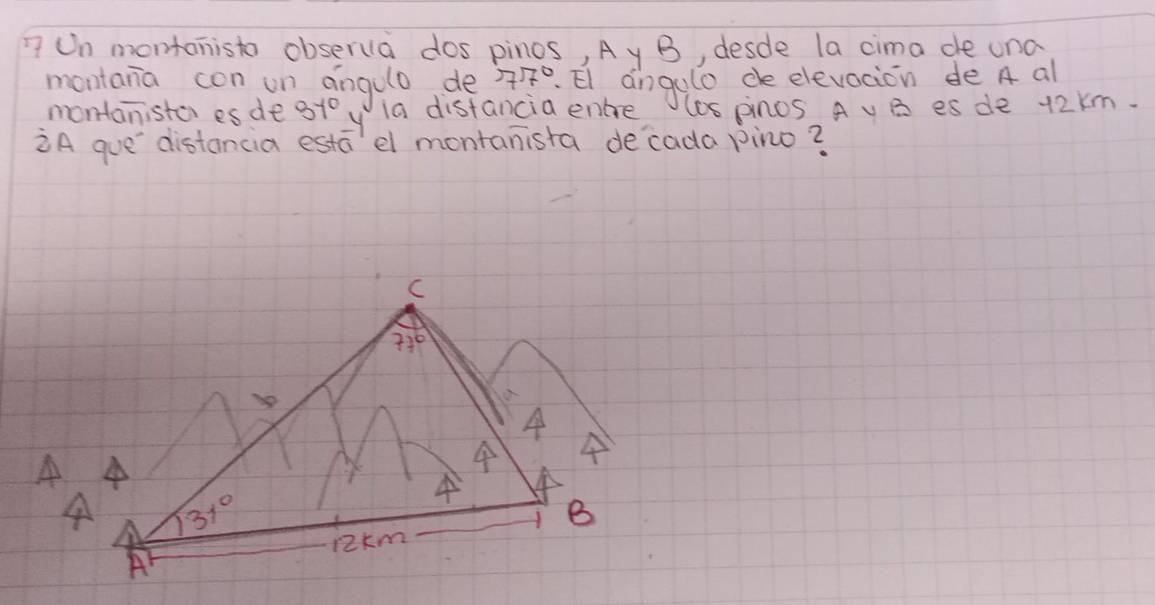 7 Un montañista observa dos pinos, A y B, desde la cima de una
montaña con un ángulo de 77°. El ángulo de elevación de A al
montañista es de 31° y la distancia entre los pinos A y B es de 12 km.
¿A qué distancia está el montañista de cada pino?
C
77°
b
a
31°
12 km
A
B